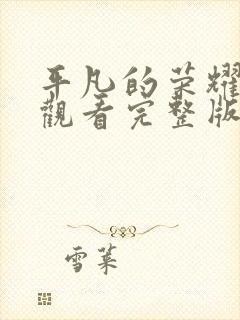 平凡的荣耀
觀看完整版
雪萊